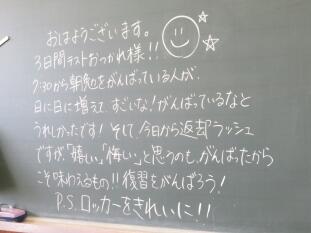 おはようございます。
3日間テストおつかれ様!!
7:30から朝勉をがんばっている人が、
日に日に増えて、すごいな!がんばっているなと
うれしかったです!そして、今日から返却ラッシュ
ですが、「嬉しい」「悔しい」と思うのも、がんばったから
こそ味わえるもの!!復習をがんばろう!
P.S.ロッカーをきれいに!!